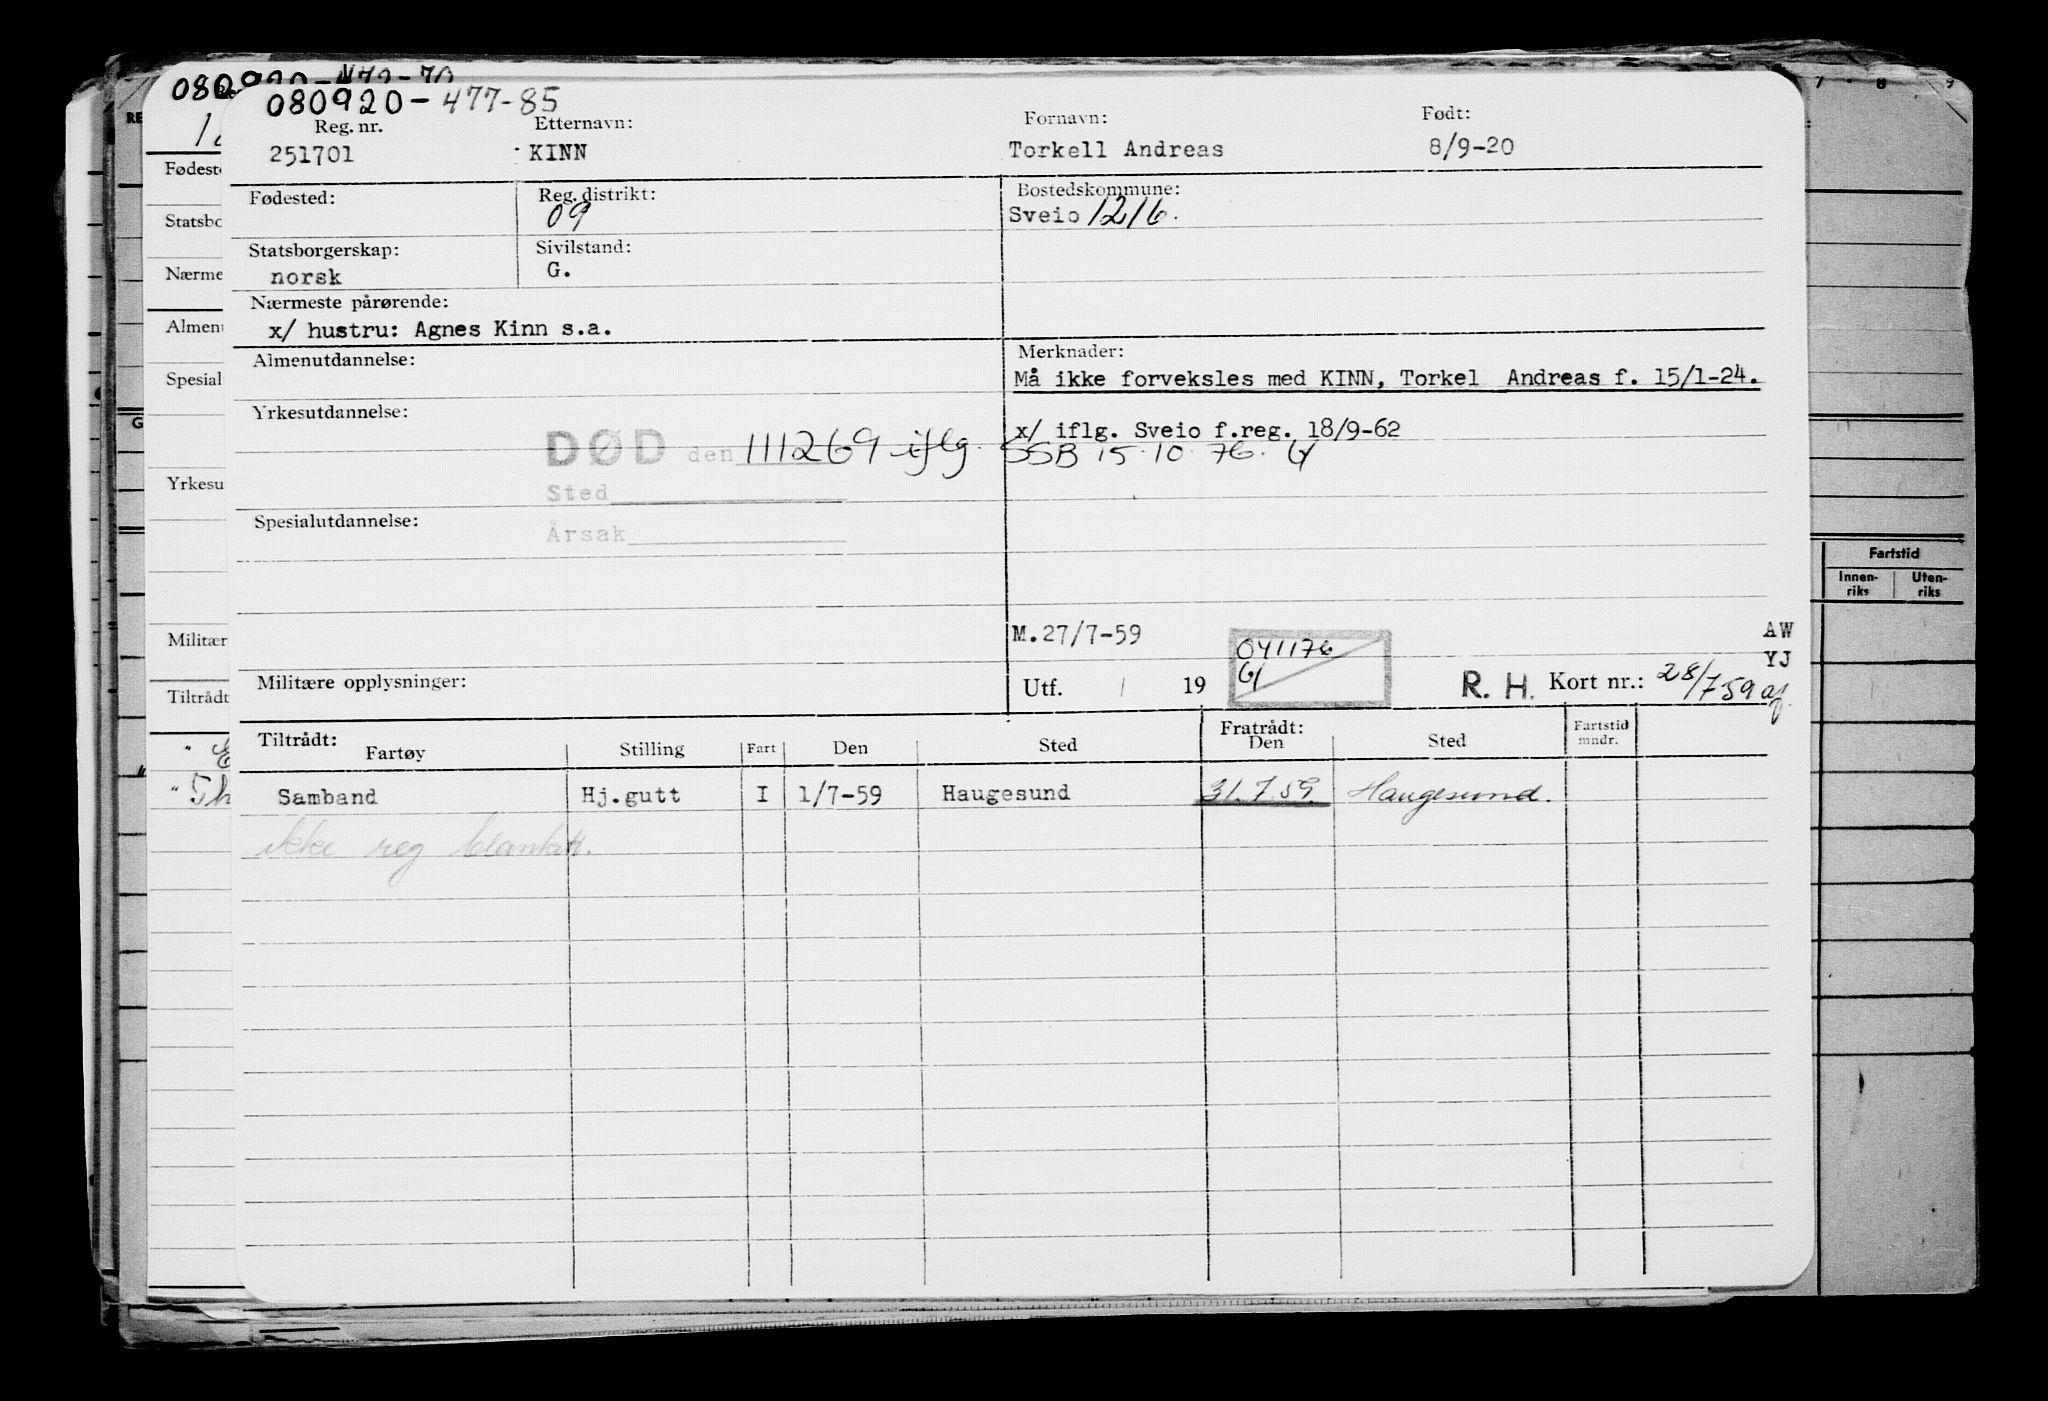 080920-477-85
Reg. nr. Etternavn: Fornavn: Født:
251701 KINN Torkell Andreas 8/9-20
Fødested: Reg. distrikt: Bostedskommune:
09 Sveio 1216.
Statsborgerskap: Sivilstand:
norsk G.
Nærmeste pårørende:
x/ hustru: Agnes Kinn s.a.
Almenutdannelse: Merknader:
Må ikke forveksles med KINN, Torkel Andreas f. 15/1-24.
Yrkesutdannelse:
x/ iflg. Sveio f.reg. 18/9-62
DØD den 111269 iflg. SSB 15.10.76.
Sted
Spesialutdannelse:
Årsak
M.27/7-59
AW
041176
YJ
Militære opplysninger: Utf. / 19 R. H. Kort nr.: 28/7 59
Tiltrådt: Fratrådt:
Fartøy Stilling Fart Den Sted Den Sted Fartstid mndr.
Samband Hj.gutt I 1/7-59 Haugesund 31.7.59. Haugesund.
ikke reg blankett.
Fødest
Statsbo
Nærme
Almen
Spesial
Yrkesu
Militær
Tiltrådt
RE
G
7 8 9
Fartstid
Innen-riks Uten-riks